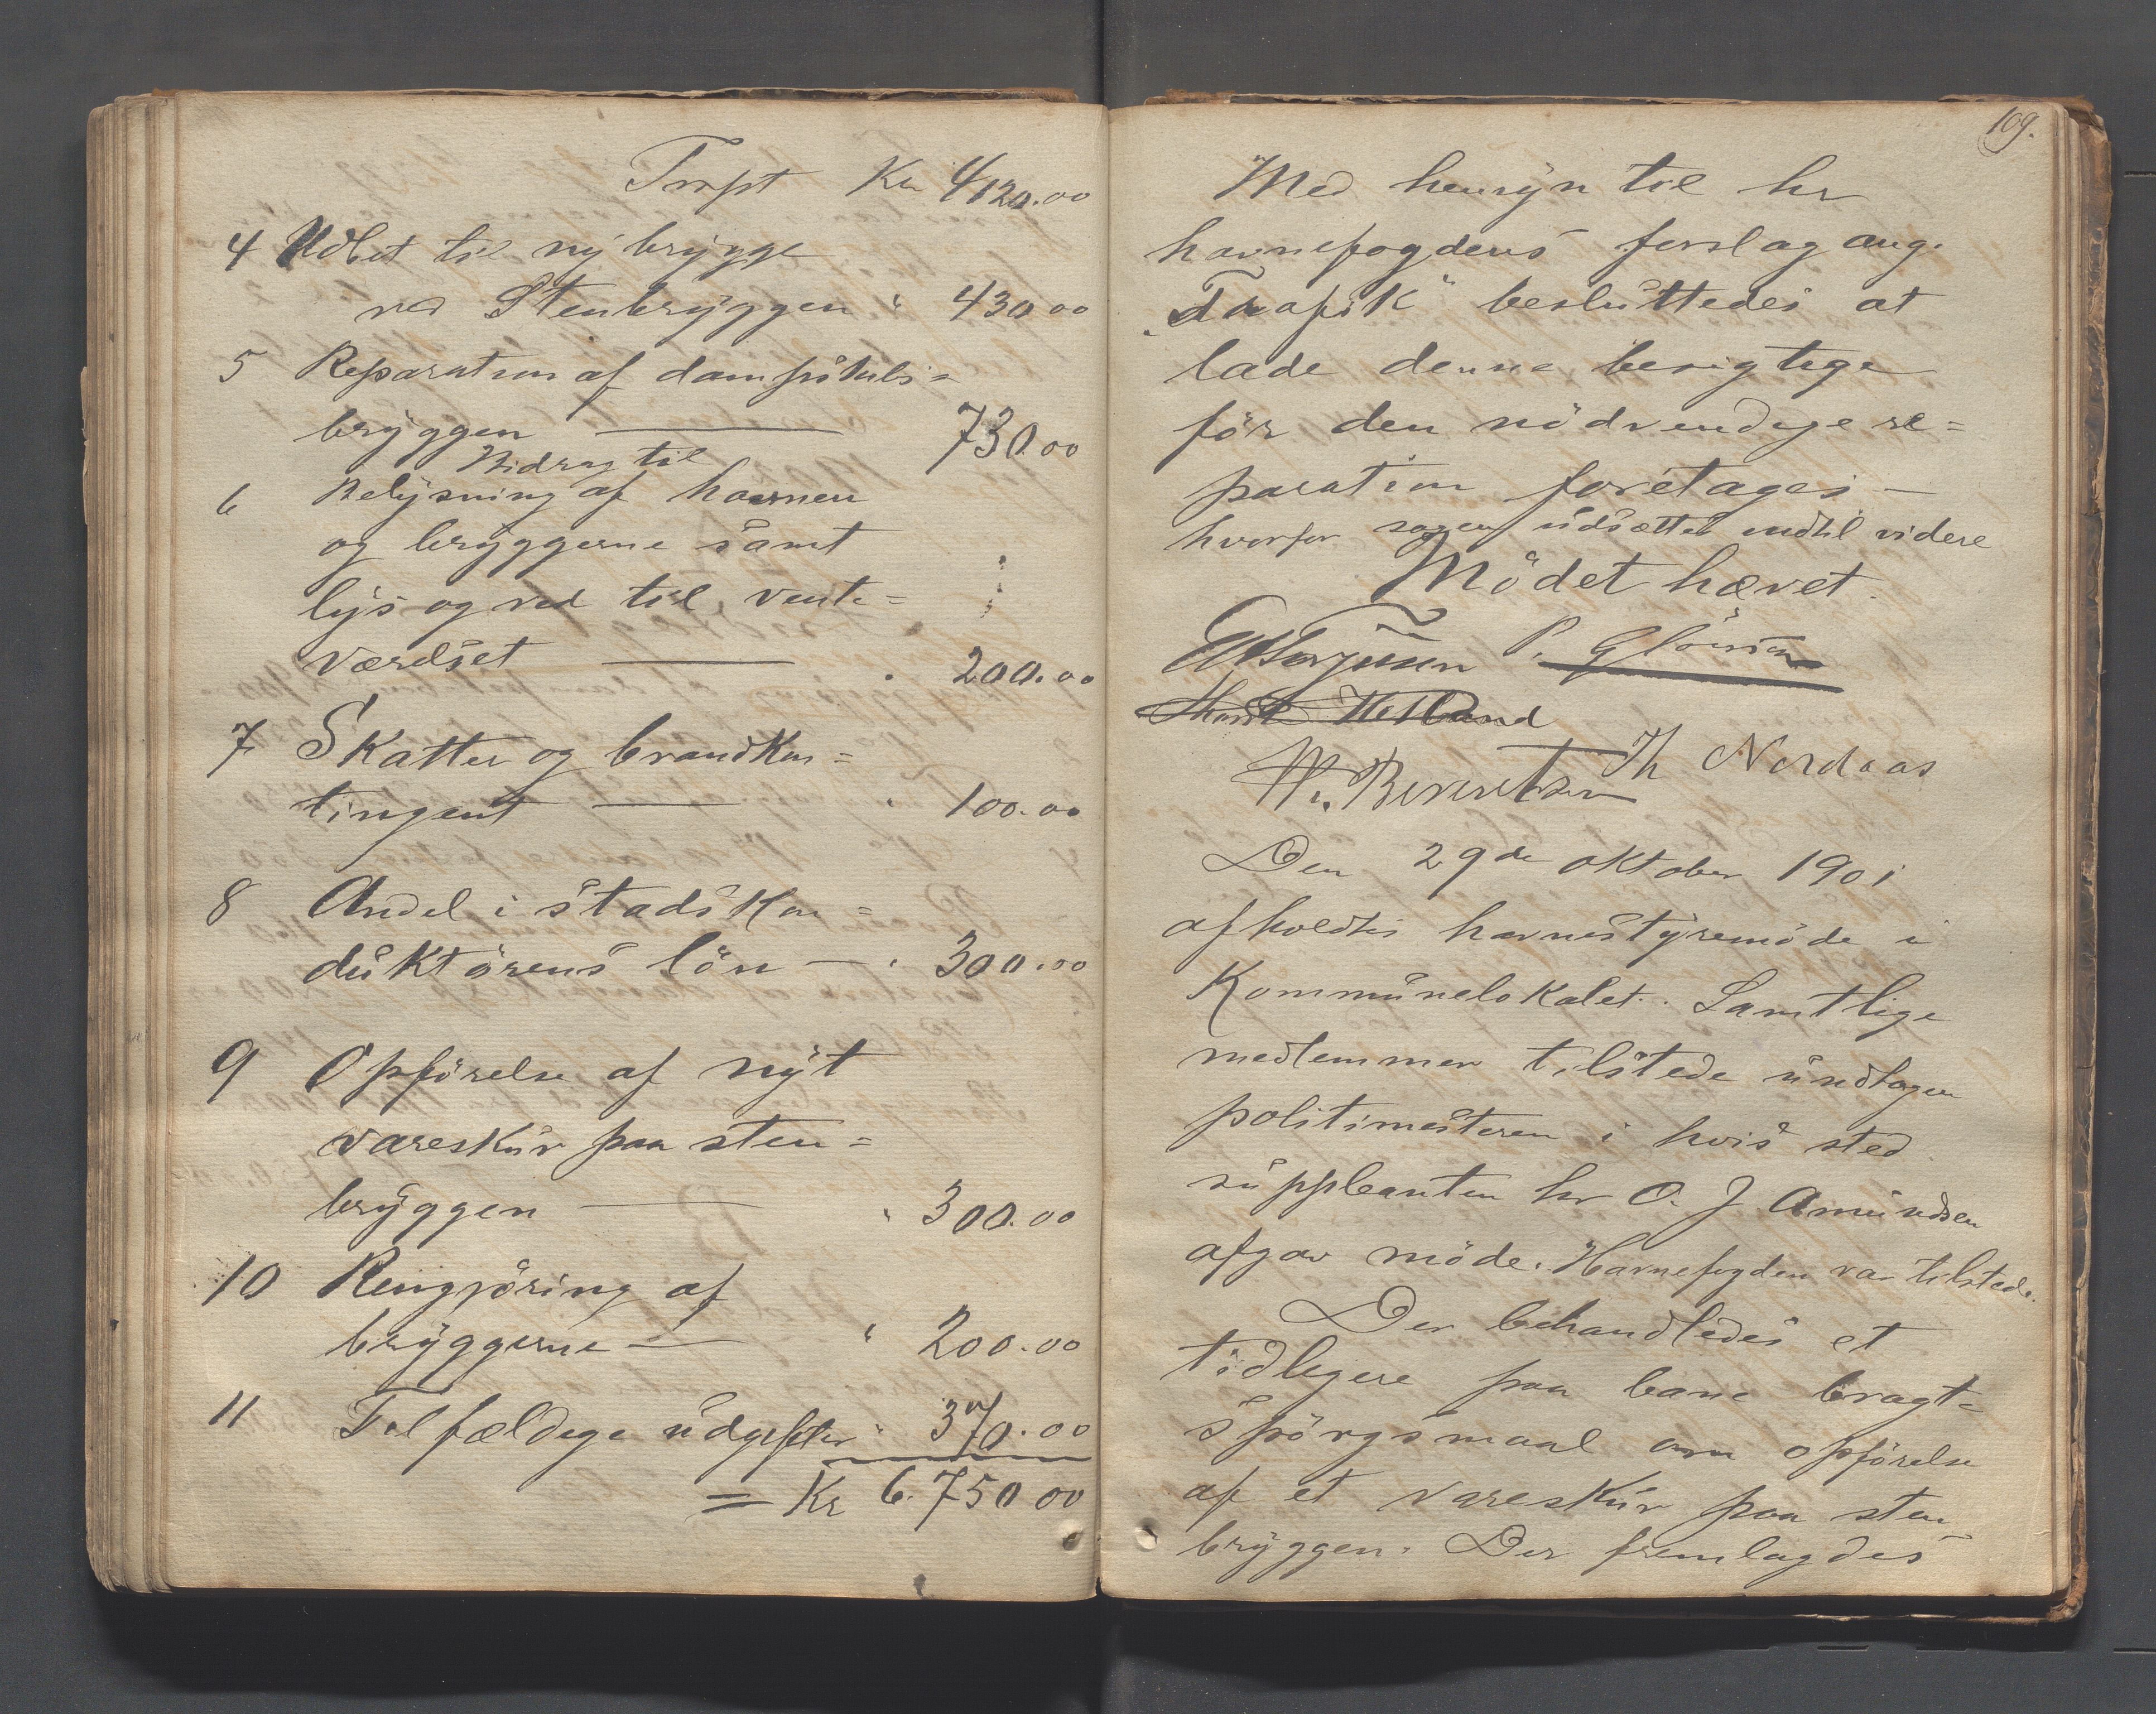 Trspt Kr 4120.00
4 Udlæt til ny brygge
ved Stenbryggen " 430 00
5 Reparation af dampskibs=
bryggen — 730.00
Bidrag til
6 Belysning af havnen
og bryggerne samt
lys og ved til vente=
værelset — " 200.00
7 Skatter og brandkon=
tingent — " 100.00
8 Andel i stadskon=
duktørens løn — " 300.00
9 Opførelse af nyt
vareskur paa sten=
bryggen — " 300.00
10 Rengjøring af
bryggerne — " 200.00
11 Tilfældige udgifter " 370.00
= Kr 6.750 00
109.
Med hensyn til hr
havnefogdens forslag ang.
"Trafik" besluttedes at
lade denne besigtige
før den nødvendige re=
paration foretages —
hvorfor sagen udsættes indtil videre
Mødet hævet.
P.
Hesland
Th Nordaas
Berentsen
Den 29de oktober 1901
afholdtes havnestyremøde i
Kommunelokalet. Samtlige
medlemmer tilstede undtagen
politimesteren i hvis sted
suppleanten hr O. J. Amundsen
afgav møde. Havnefogden var tilstede.
Der behandledes et
tidligere paa bane bragt
spørgsmaal om opførelse
af et vareskur paa sten
bryggen. Der fremlagdes